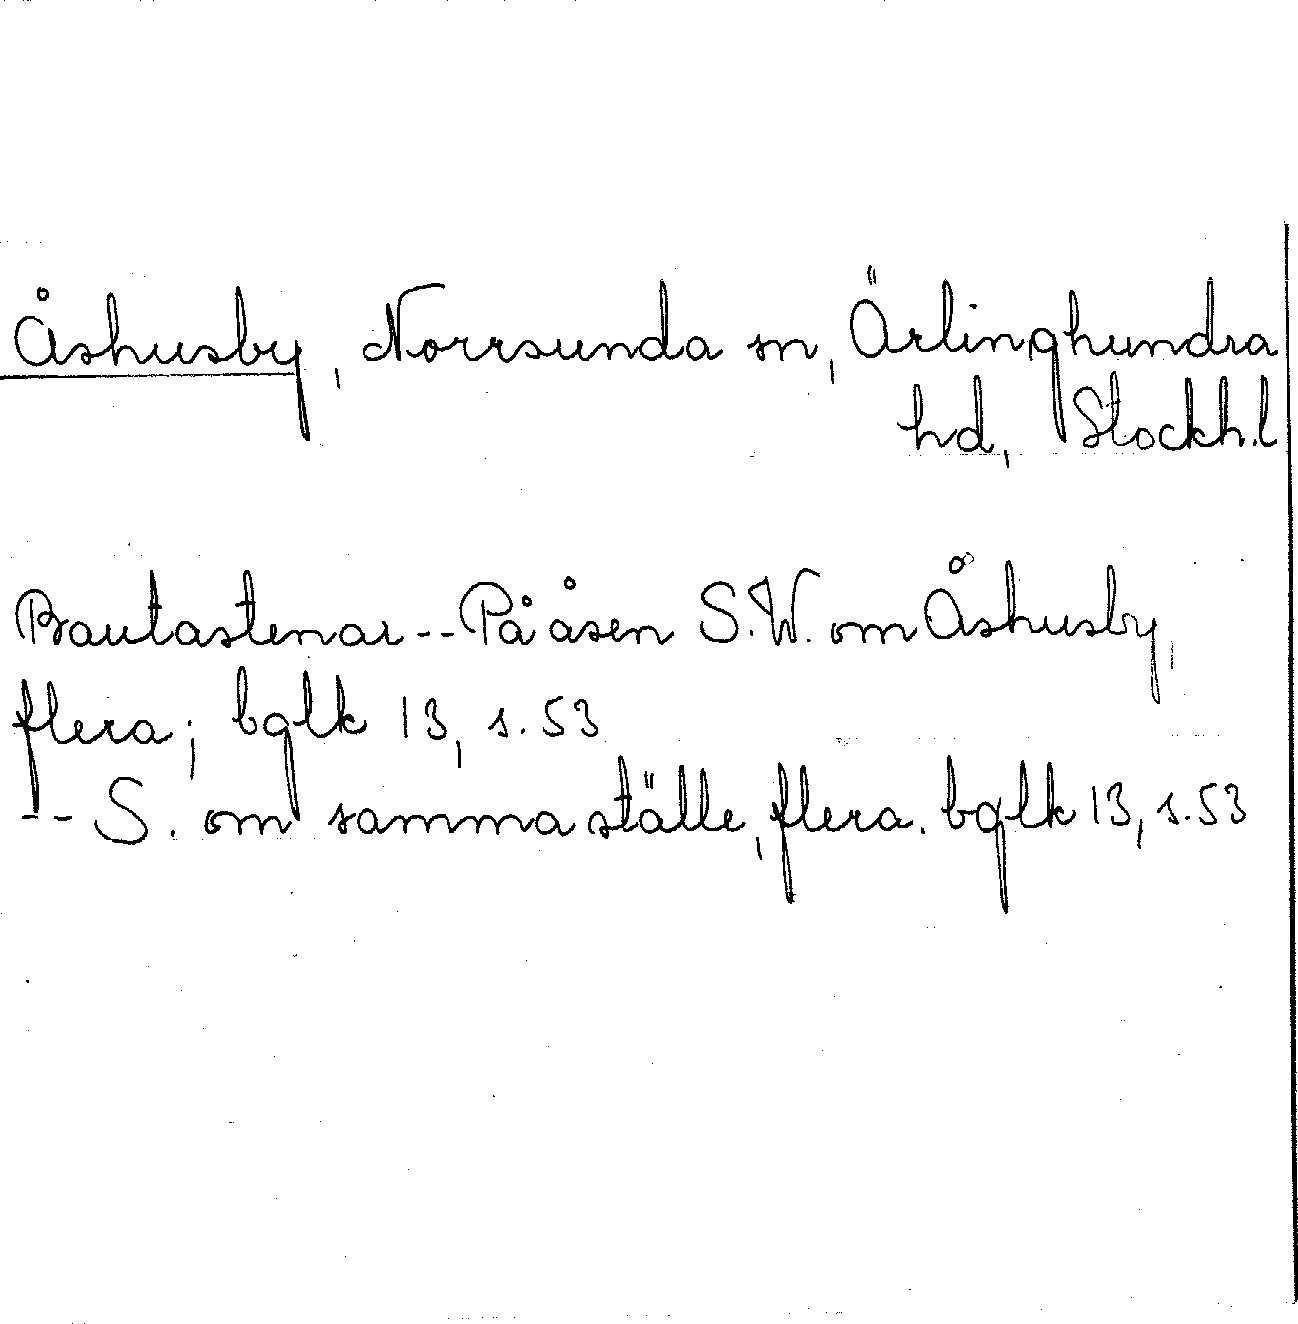 Åshusby, Norrsunda sn, Ärlinghundra
hd, Stockh.l
Bautastenar -- På åsen S.W. om Åshusby,
flera; bglk 13, s. 53
-- S. om samma ställe, flera. bglk 13, s. 53